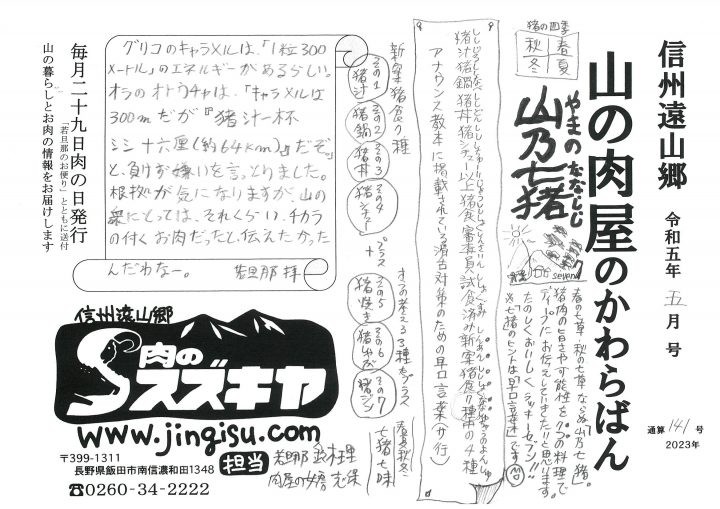 信州遠山郷 令和五年 五月号
山の肉屋のかわらばん
通算141号
2023年
猪の四季
春
夏
秋
冬
やまの ななしし
山乃七猪
seven
春の七草 秋の七草 ならぬ「山乃七猪」。
猪肉の旨さや可能性を7つの料理で
ディープにお伝えしていきたい!!と思います。
たのしくおいしくラッキーセブン!
※「七猪」のヒントは早口言葉です
猪汁猪鍋猪丼猪シチュー以上猪食審査員試食済み新案猪食い七種中の4種
アナウンス教本に掲載されている滑舌対策のための早口言葉(サ行)
新案猪食い七種
その1 猪汁
その2 猪鍋
その3 猪丼
その4 猪シチュー
+プラス
その5 猪焼き
その6
その7
オラの考える3種をプラス
春夏秋冬
七猪七味
グリコのキャラメルは、「1粒300
メートル」のエネルギーがあるらしい。
オラのオトウチャは、「キャラメルは
300mだが『猪汁一杯
シシ十六里(約64km)』だぞ」
と、負けず嫌いを言っとりました。
根拠が気になりますが、山の
衆にとっては、それくらい、チカラ
の付くお肉だったと、伝えたかった
んだわなー。 若旦那 拝
毎月二十九日肉の日発行
「若旦那のお便り」とともに送付
山の暮らしとお肉の情報をお届けします
信州遠山郷
肉の
スズキヤ
www.jingisu.com
〒399-1311
長野県飯田市南信濃和田1348
☎0260-34-2222
担当
若旦那 鈴木理
肉屋の女房 志保